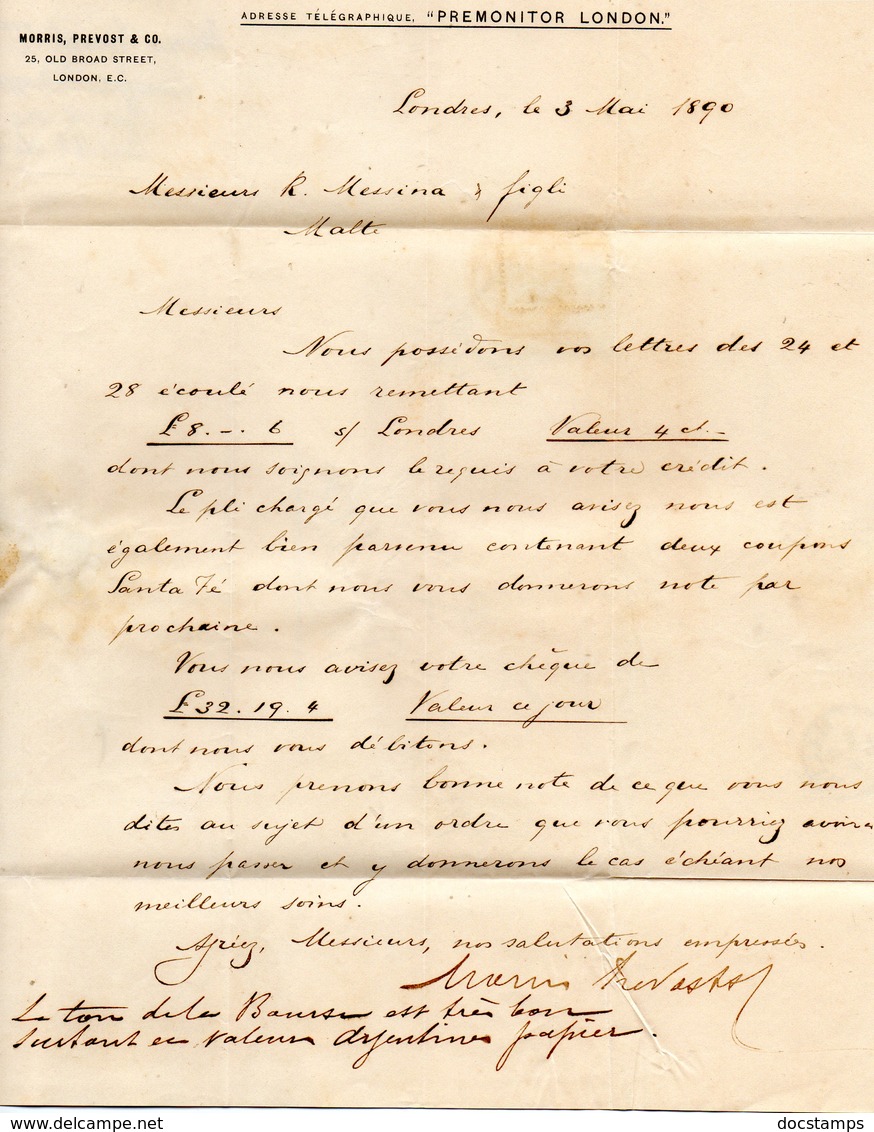 ADRESSE TÉLÉGRAPHIQUE, "PREMONITOR LONDON."
MORRIS, PREVOST & CO.
25, OLD BROAD STREET,
LONDON, E.C.
Londres, le 3 Mai 1890
Messieurs R. Messina & figli
Malte
Messieurs
Nous possédons vos lettres des 24 et
28 écoulé nous remettant
£8. -. 6 s/ Londres Valeur 4 ct.-
dont nous soignons le requis à votre crédit.
Le pli chargé que vous nous avisez nous est
également bien parvenu contenant deux coupons
Santa Fé dont nous vous donnerons note par
prochaine.
Vous nous avisez votre chèque de
£32. 19. 4 Valeur ce jour
dont nous vous débitons.
Nous prenons bonne note de ce que vous nous
dites au sujet d'un ordre que vous pourriez avoir à
nous passer et y donnerons le cas échéant nos
meilleurs soins.
Agréez, Messieurs, nos salutations empressées.
Morris Prevost &
Le ton de la Bourse est très bon
surtout en valeurs Argentines papier.
docstamps